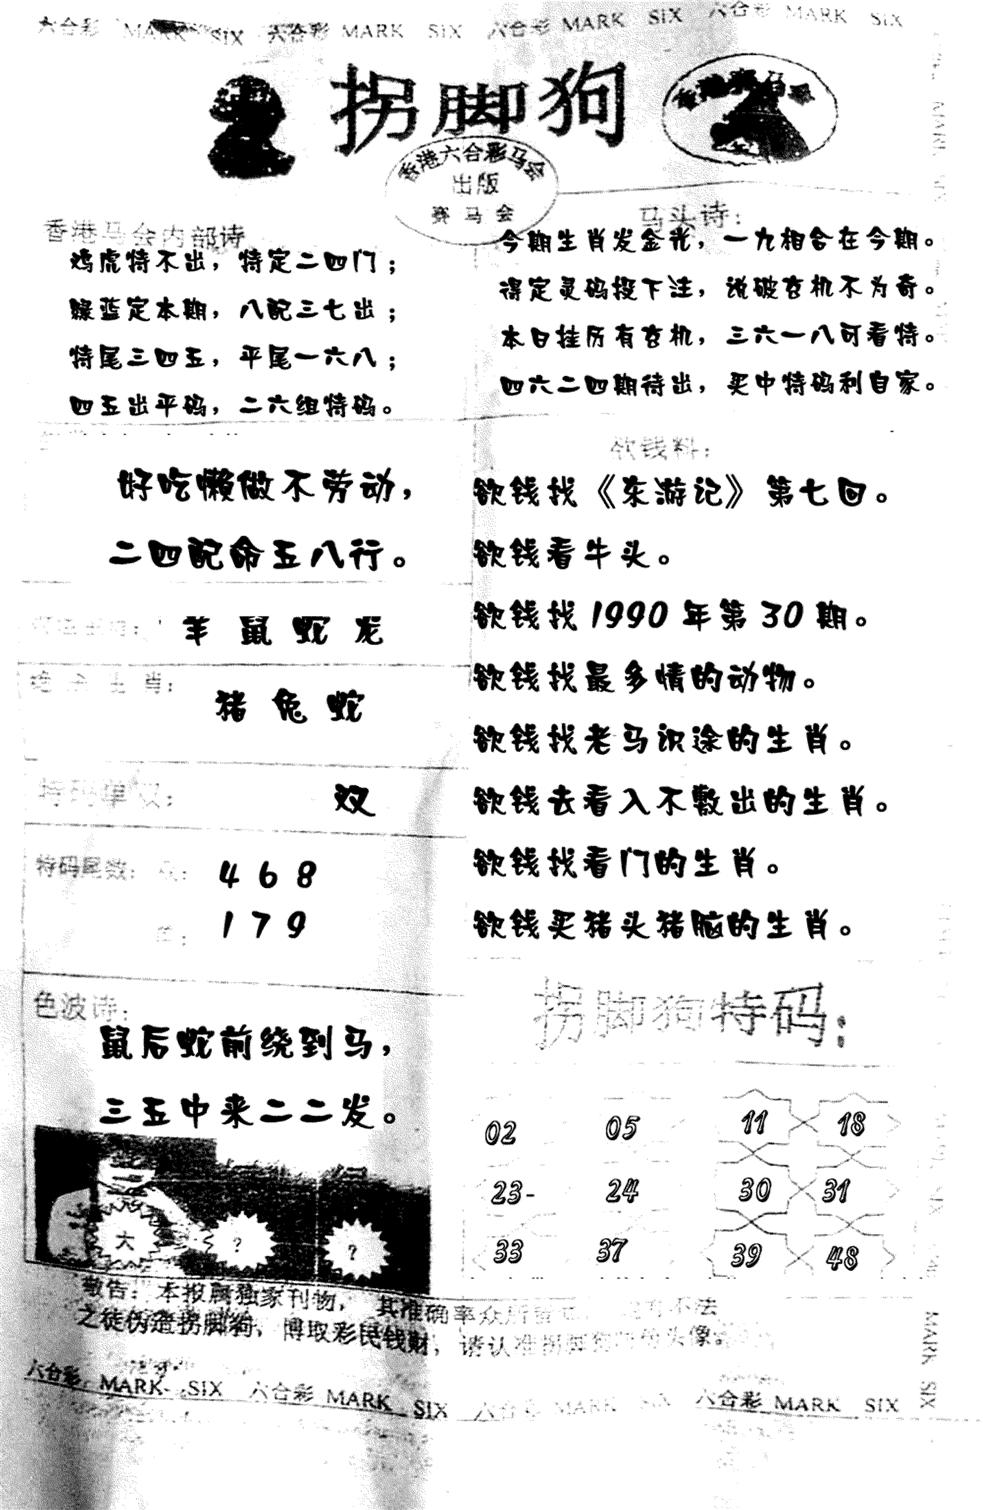 六合彩 MARK SIX 六合彩 MARK SIX 六合彩 MARK SIX 六合彩 MARK SIX
拐脚狗
香港赛马会
香港六合彩马会
出版
赛马会
香港马会内部诗
鸡虎特不出，特定二四门；
绿蓝定本期，八配三七出；
特尾三四五，平尾一六八；
四五出平码，二六组特码。
马头诗：
今期生肖发金光，一九相合在今期。
得定灵码投下注，说破玄机不为奇。
本日挂历有玄机，三六一八可看特。
四六二四期待出，买中特码利自家。
好吃懒做不劳动，
二四配命五八行。
羊 鼠 蛇 龙
绝杀生肖：
猪 兔 蛇
特码单双：
双
特码尾数：双：
4 6 8
单：
1 7 9
色波诗：
鼠后蛇前绕到马，
三五中来二二发。
大 ? ?
欲钱料：
欲钱找《东游记》第七回。
欲钱看牛头。
欲钱找1990年第30期。
欲钱找最多情的动物。
欲钱找老马识途的生肖。
欲钱去看入不敷出的生肖。
欲钱找看门的生肖。
欲钱买猪头猪脑的生肖。
拐脚狗特码：
02 05 11 18
23- 24 30 31
33 37 39 48
敬告：本报属独家刊物，其准确率众所 不法
之徒伪造拐脚狗，博取彩民钱财，请认准拐脚狗 头像
六合彩 MARK SIX 六合彩 MARK SIX 六合彩 MARK SIX 六合彩 MARK SIX
MARK SIX